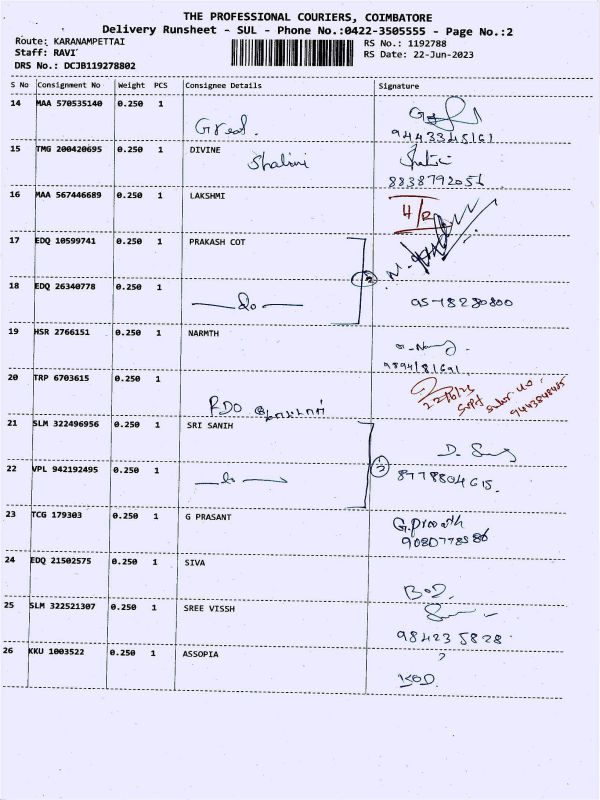 THE PROFESSIONAL COURIERS, COIMBATORE
Delivery Runsheet - SUL - Phone No.:0422-3505555 - Page No.:2
Route: KARANAMPETTAI RS No.: 1192788
Staff: RAVI RS Date: 22-Jun-2023
DRS No.: DCJB119278802
S No Consignment No Weight PCS Consignee Details Signature
14 MAA 570535140 0.250 1
Great.
9443345161
15 TMG 200420695 0.250 1 DIVINE
Shalini
8838792056
16 MAA 567446689 0.250 1 LAKSHMI
17 EDQ 10599741 0.250 1 PRAKASH COT
18 EDQ 26340778 0.250 1
do
19 HSR 2766151 0.250 1 NARMTH
20 TRP 6703615 0.250 1
RDO
21 SLM 322496956 0.250 1 SRI SANIH
22 VPL 942192495 0.250 1
do
8778804615.
23 TCG 179303 0.250 1 G PRASANT
9080778586
24 EDQ 21502575 0.250 1 SIVA
BOD.
25 SLM 322521307 0.250 1 SREE VISSH
984235828
26 KKU 1003522 0.250 1 ASSOPIA
KOD.